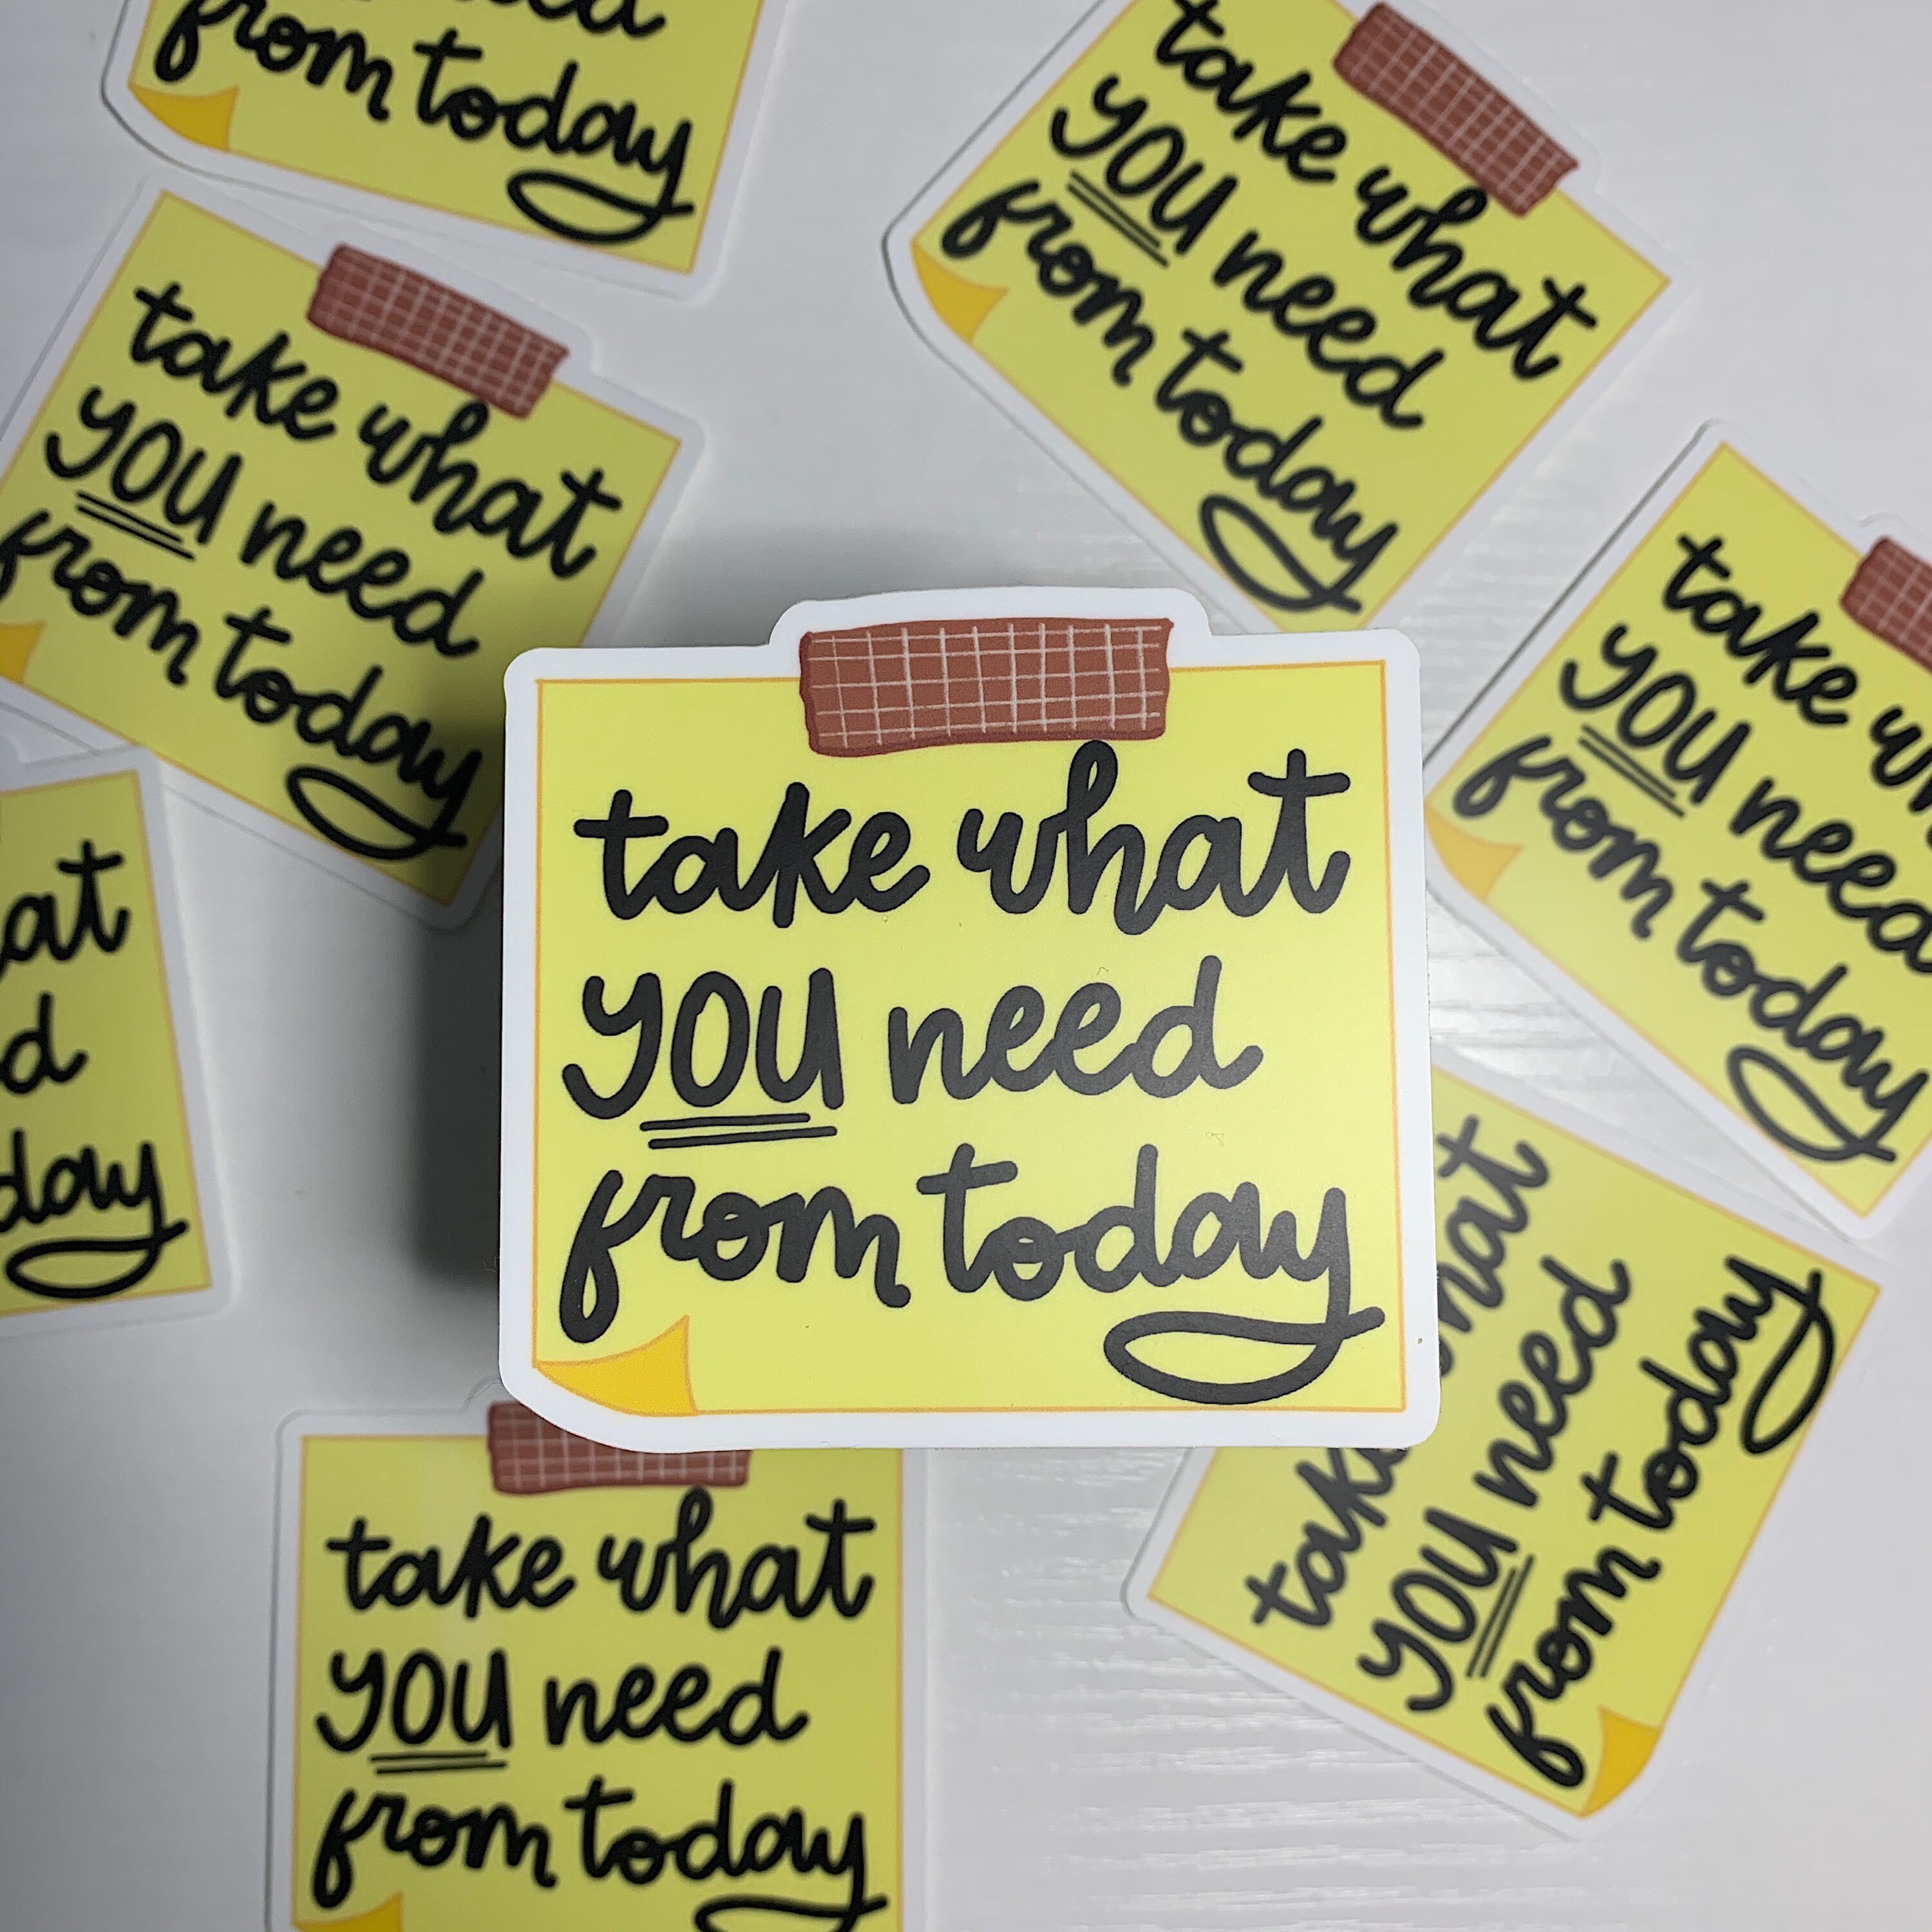 need
from today
take what
you need
from today
take what
you need
from today
take what
you need
from today
take
you need
from today
take what
you need
from today
at
d
day
hat
take
you need
from today
take what
you need
from today